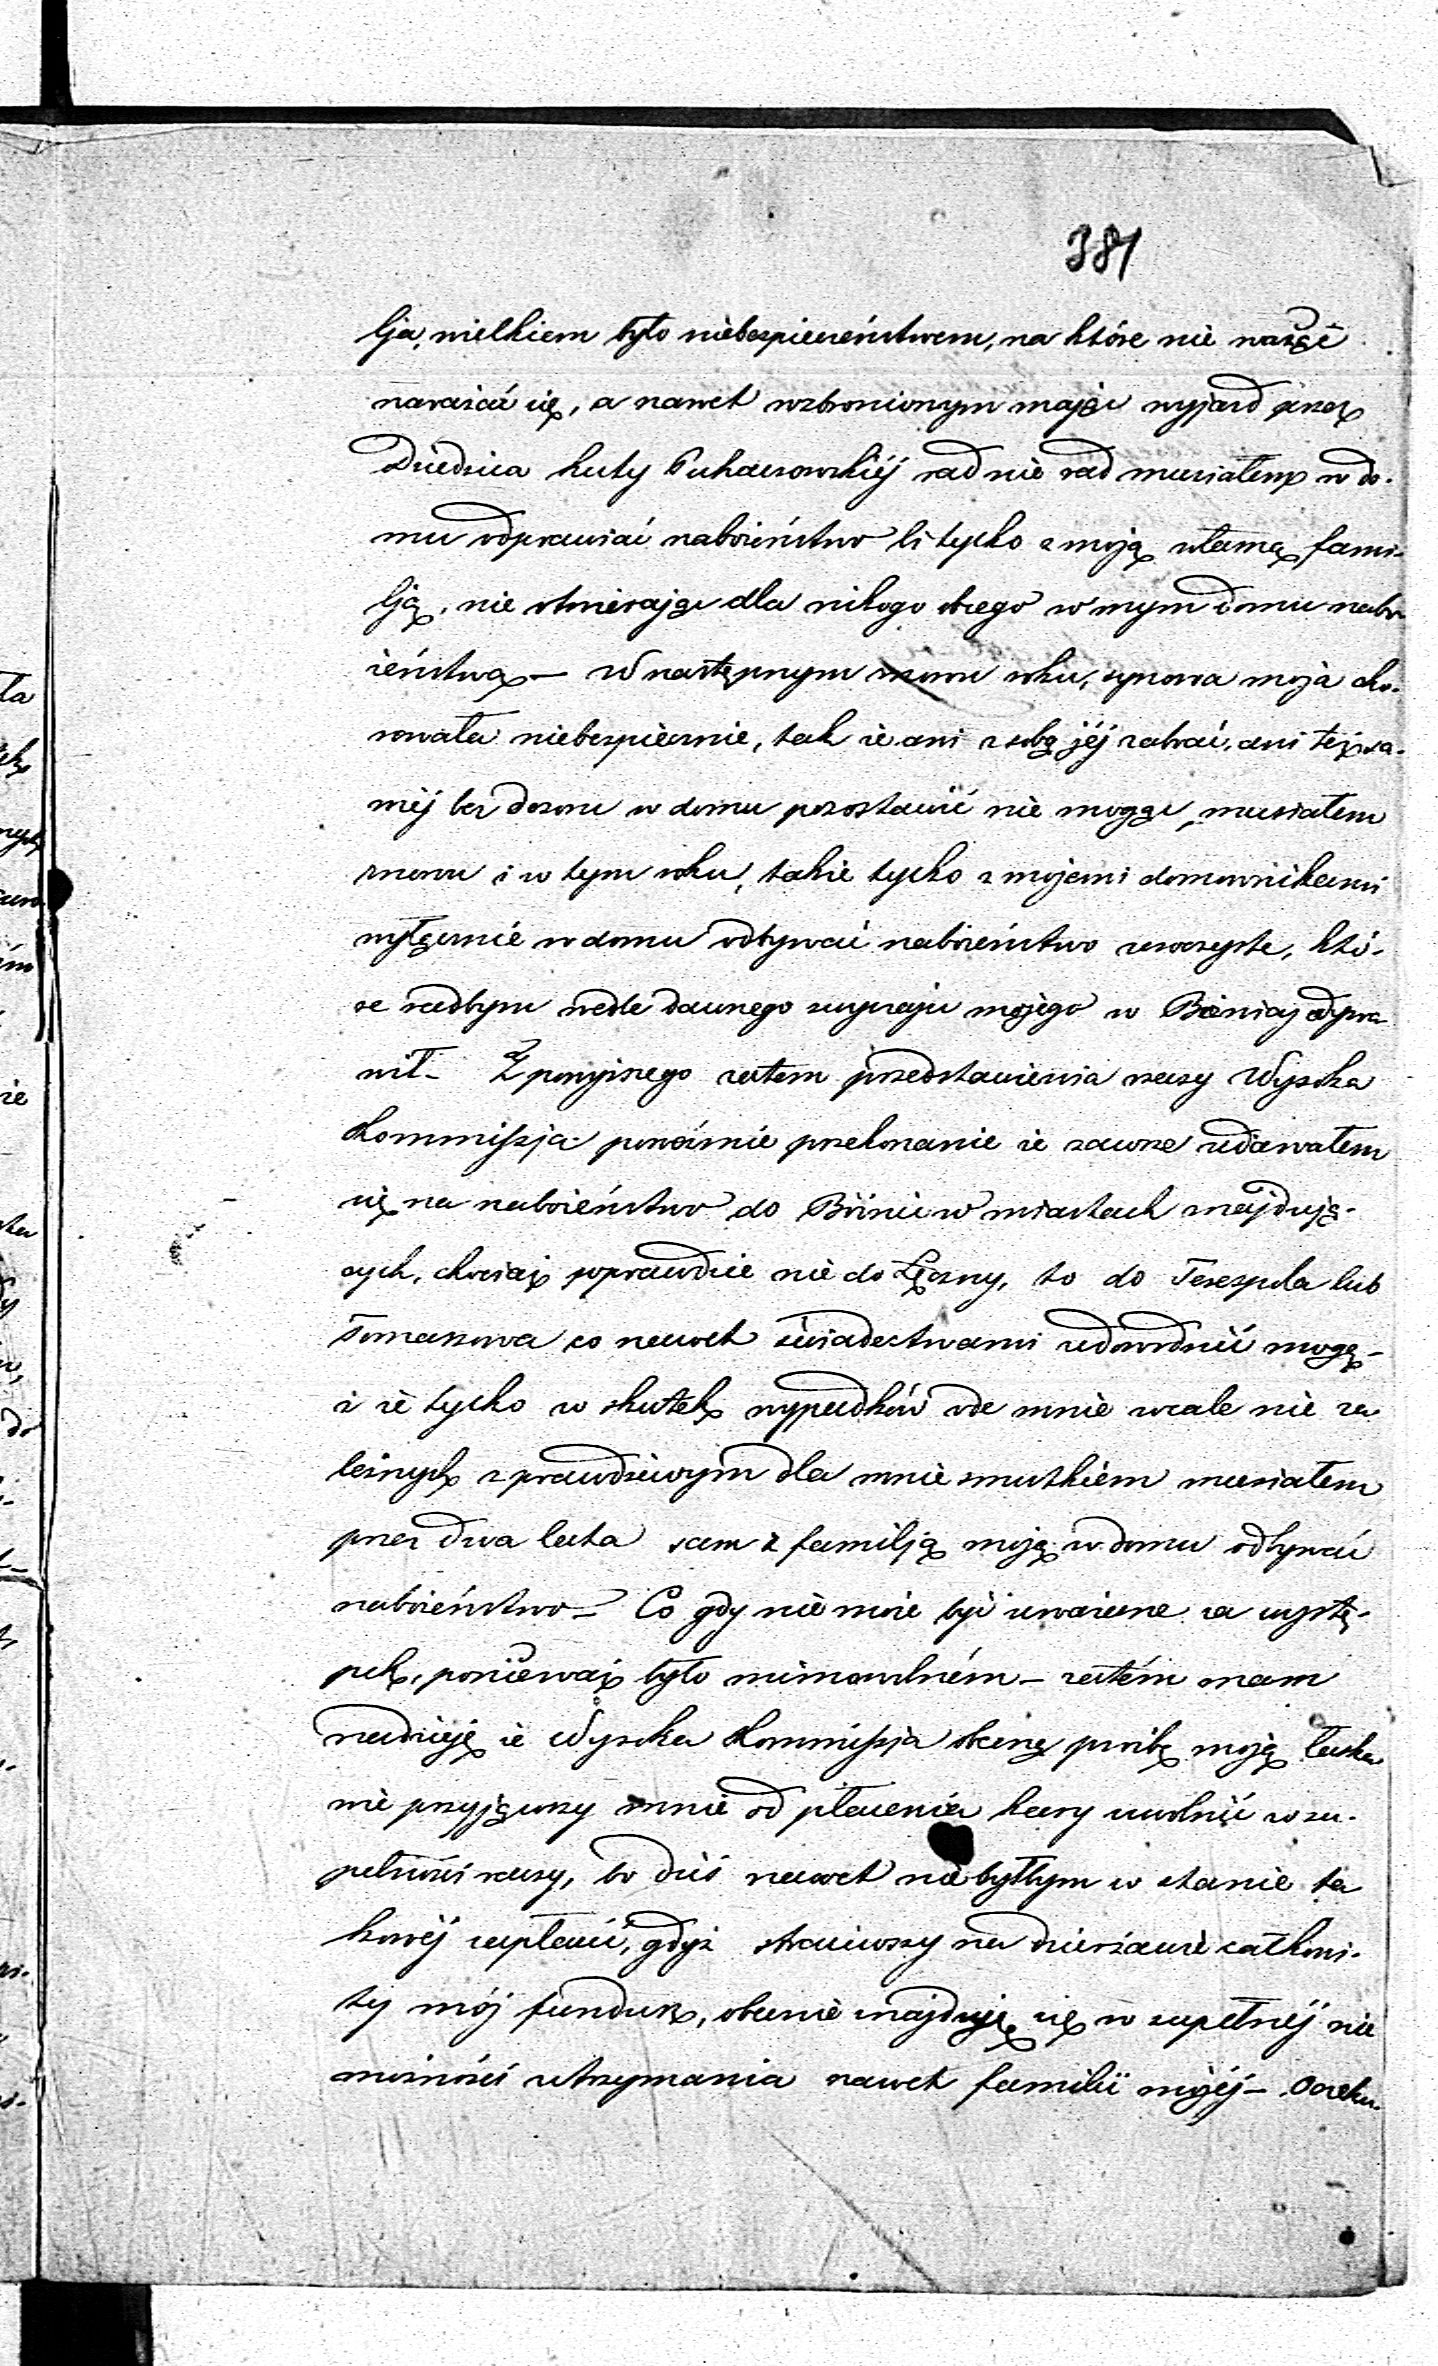 381
lja, wielkiem było niebezpieczeństwem, na które nie ważąc
narażać się, a nawet wzbronionym mając wyjazd przez
Dziedzica huty rad nie rad musiałem w do-
mu odprawiać nabożeństwo li tylko z moją własną fami-
lją, nie otwierając dla nikogo obcego w mym domu nabo-
żeństwa — W następnym znowu roku, synowa moja cho-
rowała niebezpiecznie, tak że ani z sobą jéj zabrać, ani téż sa-
méj bez dozoru w domu pozostawić nie mogąc, musiałem
znowu i w tym roku, takie tylko z mojemi domownikami
wyłącznie w domu odbywać nabożeństwo uroczyste, któ-
re radbym wedle dawnego zwyczaju mojego w Bóżnicy odpra-
wił — Z powyższego zatem przedstawienia raczy Wysoka
Kommissja poweźmie przekonanie że zawsze udawałem
się na nabożeństwo do Bóźnic w miastach znajdują-
cych, chociaż wprawdzie nie do Łęczny, to do Tereszpola lub
Tomaszowa co nawet świadectwami udowodnić mogę —
i że tylko w skutek wypadków ode mnie wcale nie za
leżnych z prawdziwym dla mnie smutkiem musiałem
przez dwa lata sam z familją moją w domu odbywać
nabożeństwo — Co gdy nie może być uważane za wystę-
pek, ponieważ było mimowolném — zatém mam
nadzieję że Wysoka Kommissja obecną prośbę moją łaska
wie przyjąwszy mnie od płacenia kary uwolnić w zu-
pełności raczy, bo dziś nawet nie byłbym w stanie ta
kowéj zapłacić, gdyż straciwszy na dzierżawie całkowi-
ty mój fundusz, obecnie znajduję się w zupełnéj nie
możności utrzymania nawet familii mojéj —